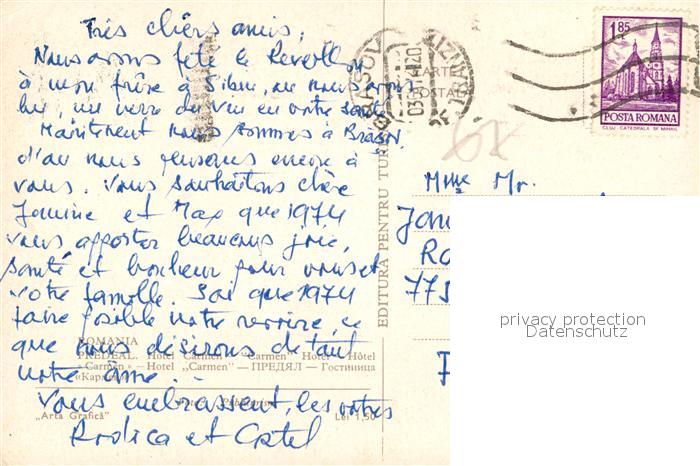 Très chers amis,
Nous avons fêté le Revellon
à mon frère à Sibiu, ou nous avons
bu, un verre du vin en votre santé
Maintenent nous sommes à Brașov.
d'au nous pensons encore à
vous. Vous souhaitons chère
Janine et Max que 1974
vous apporter beaucous joie,
santé et bonheur pour vous et
votre famille. Soi que 1974
faire posible notre revoire, ce
que nous désirons de tout
notre âme.
Vous embrassent, les votres
Rodica et Costel
ROMANIA
PREDEAL. Hotel "Carmen" Hotel - Hôtel
«Carmen» - Hotel „Carmen" — ПРЕДЯЛ — Гостиница
«Кармен»
„Arta Grafică"
Lei 1,50
EDITURA PENTRU TUR
BRAȘOV
CARTE
POSTALĂ
1.85 L
POSTA ROMANA
CLUJ - CATEDRALA SF MIHAIL
Mme Mr.
Jan
Ro
775
F
privacy protection
Datenschutz